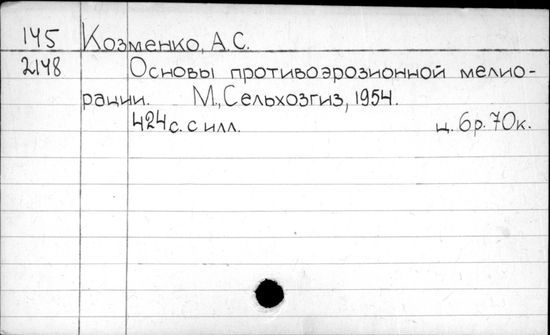 145 Козменко, А.С.
2148 Основы противоэрозионной мелио-
рации. М., Сельхозгиз, 1954.
424 с. с илл. ц. 6 р. 70 к.